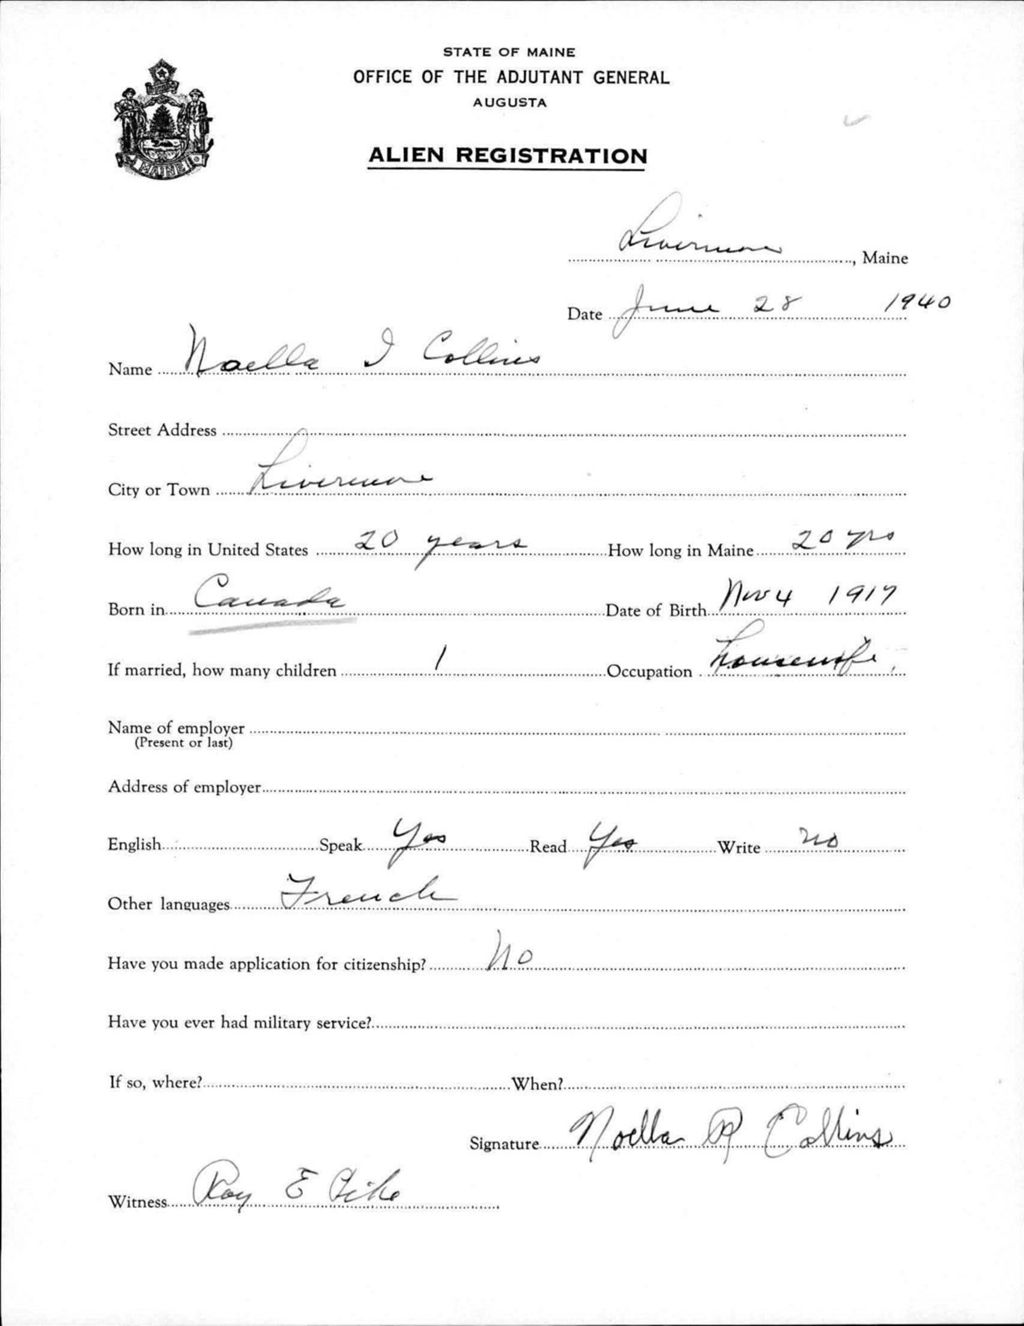 STATE OF MAINE
OFFICE OF THE ADJUTANT GENERAL
AUGUSTA
ALIEN REGISTRATION
MAINE
Livermore, Maine
Date June 28 1940
Name Noella I Collins
Street Address
City or Town Livermore
How long in United States 20 years How long in Maine 20 yrs
Born in Canada Date of Birth Nov 4 1917
If married, how many children 1 Occupation housewife
Name of employer
(Present or last)
Address of employer
English Speak Yes Read Yes Write no
Other languages French
Have you made application for citizenship? No
Have you ever had military service?
If so, where? When?
Signature Noella R Collins
Witness Roy E